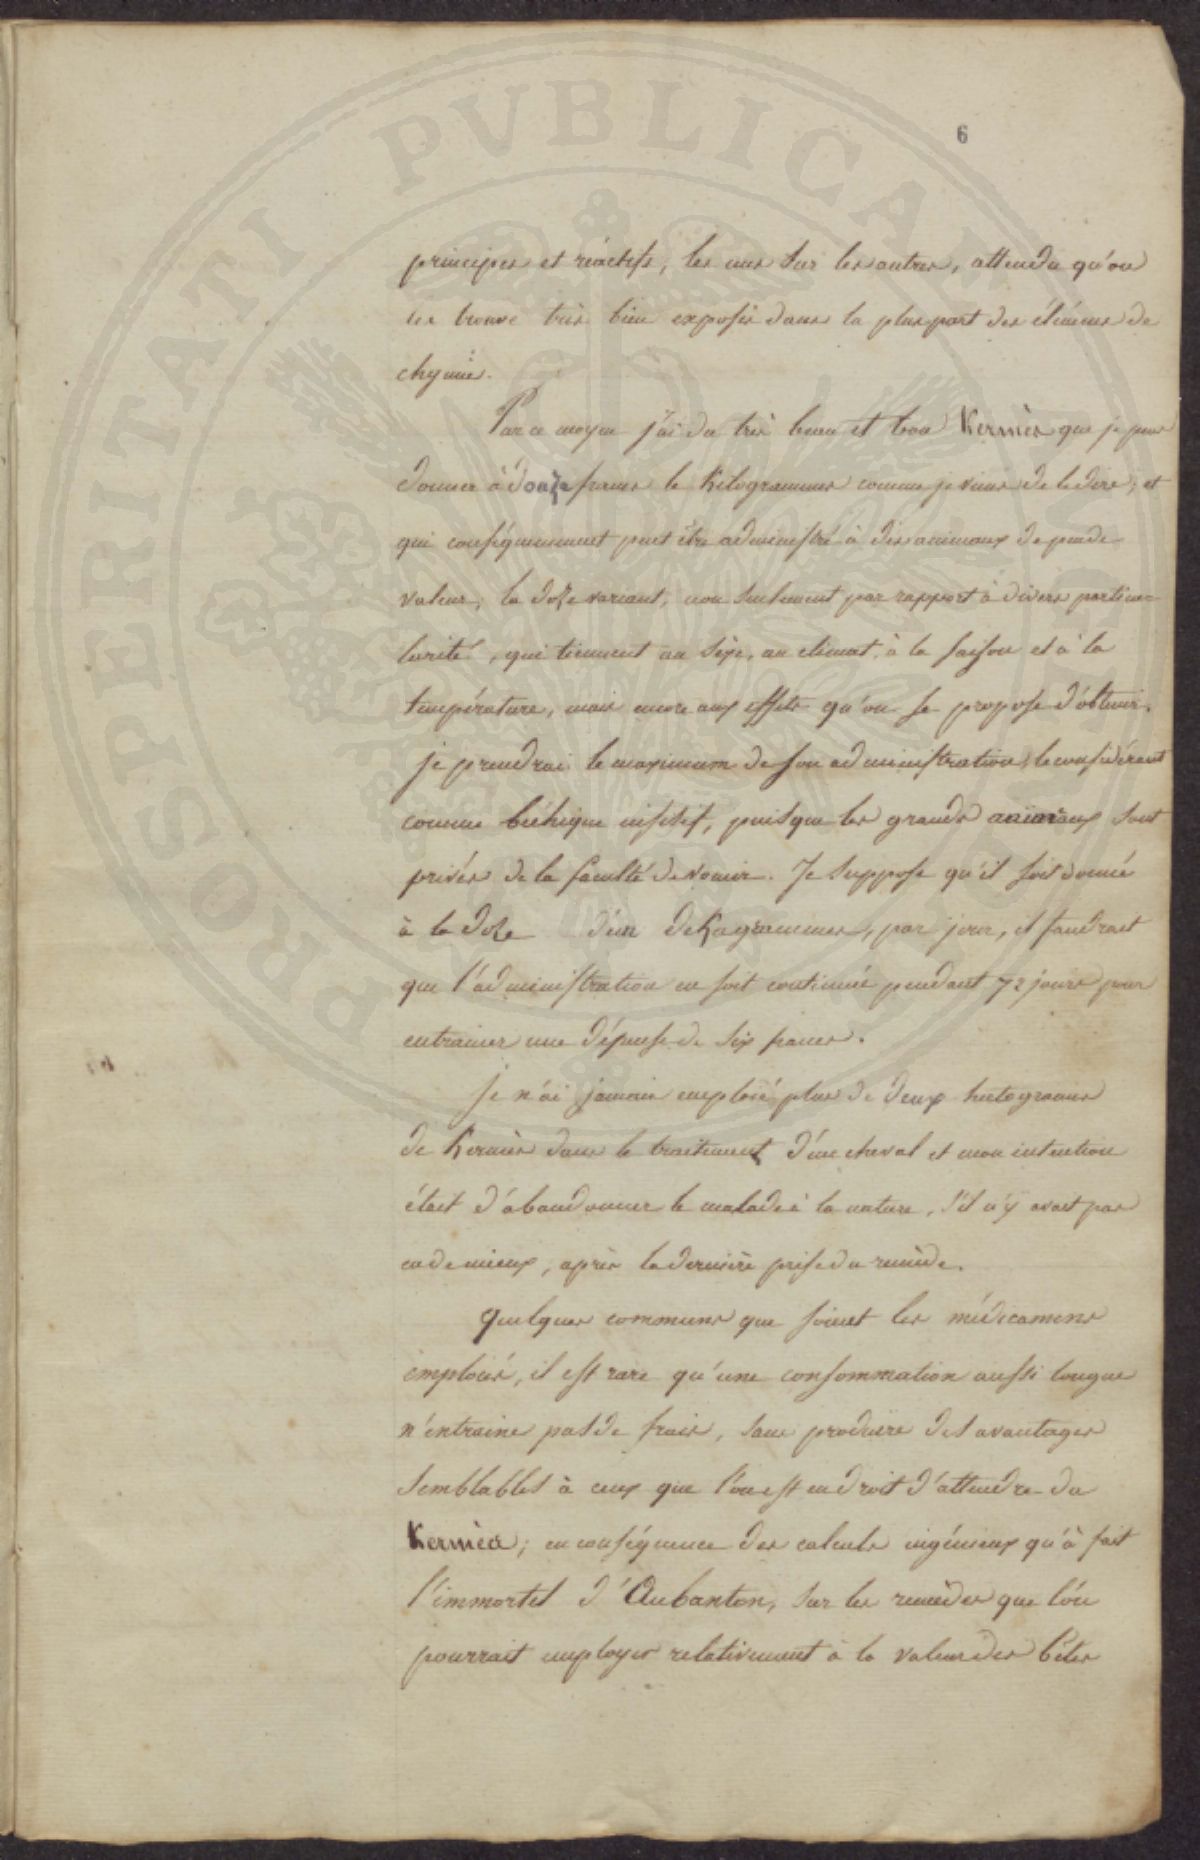 PROSPERITATI PVBLICAE
6
principes et réactifs, les uns sur les autres, attendu qu'on
les trouve très bien exposés dans la plus part des élémens de
chymie.
Par ce moyen j'ai du très beau et bon Kermès que je puis
donner à douze francs le Kilogrammes comme je viens de le dire; et
qui conséquemment peut être administré à des animaux de peu de
valeur; la doze variant, non seulement par rapport à divers particu-
larités, qui tiennent au sexe, au climat, à la saison et à la
température, mais encore aux effets qu'on se propose d'obtenir.
je prendrai le maximum de son administration, le considérant
comme béchique incisif, puisque les grands animaux sont
privés de la faculté de vomir. Je suppose qu'il soit donné
à la doze d'un dekagrammes, par jour, il faudrait
que l'administration en soit continuée pendant 72 jours pour
entrainer une dépense de six francs.
Je n'ai jamais emploié plus de deux hectogrames
de Kermès dans le traitement d'un cheval et mon intention
était d'abandonner le malade à la nature, s'il n'y avait pas
eu de mieux, après la dernière prise du remède.
Quelques communs que soient les médicamens
emploiés, il est rare qu'une consommation aussi longue
n'entraine pas de frais, sans produire des avantages
semblables à ceux que l'on est en droit d'attendre du
Kermès; en conséquence des calculs ingénieux qu'à fait
l'immortel d'Aubanton, sur les remèdes que l'on
pourrait employer relativement à la valeur des bêtes